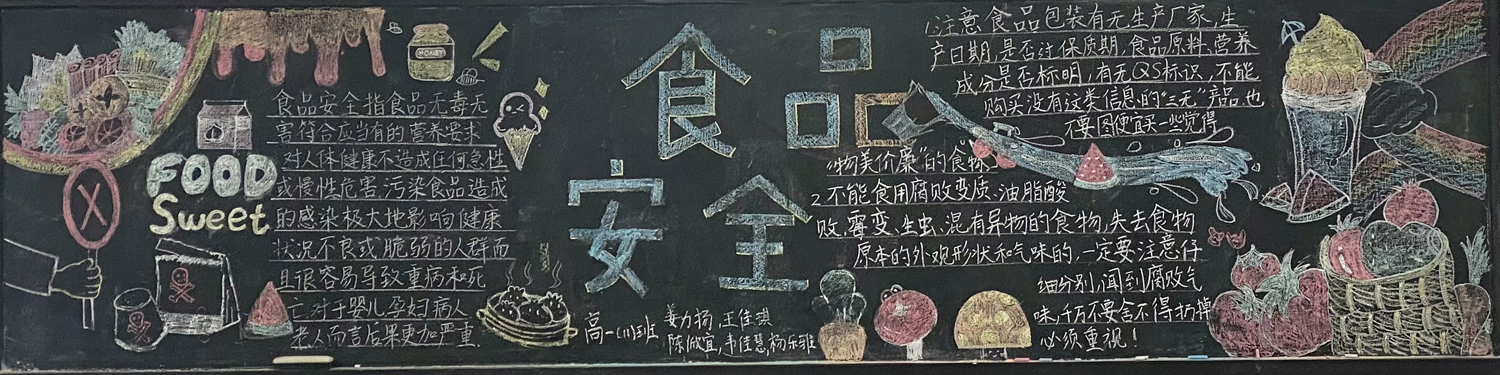 HONEY
FOOD
Sweet
X
食品安全指食品无毒无
害符合应当有的营养要求
对人体健康不造成任何急性
或慢性危害污染食品造成
的感染极大地影响健康
状况不良或脆弱的人群而
且很容易导致重病和死
亡.对于婴儿孕妇病人
老人而言后果更加严重
食品
安全
高一(11)班
姜力扬,王佳淇
陈欣宜,韦佳慧,杨乐雅
1.注意食品包装有无生产厂家,生
产日期,是否过保质期,食品原料,营养
成分是否标明,有无QS标识,不能
购买没有这类信息的"三无"产品.也
不要图便宜买一些觉得
"物美价廉"的食物.
2.不能食用腐败变质.油脂酸
败,霉变.生虫、混有异物的食物,失去食物
原本的外观形状和气味的,一定要注意仔
细分别,闻到腐败气
味,千万不要舍不得扔掉
必须重视!